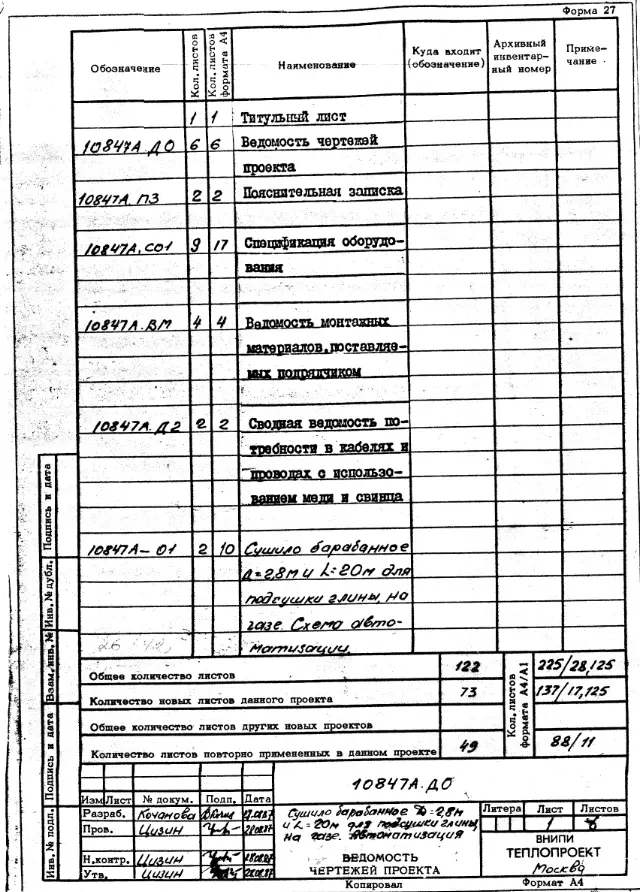 Форма 27
Обозначение
Кол. листов
Кол. листов формата А4
Наименование
Куда входит (обозначение)
Архивный инвентарный номер
Примечание
1 1 Титульный лист
10847А.Д0 6 6 Ведомость чертежей
проекта
10847А.ПЗ 2 2 Пояснительная записка
10847А.СО1 9 17 Спецификация оборудо-
вания
10847А.ВМ 4 4 Ведомость монтажных
материалов, поставляе-
мых подрядчиком
10847А.Д2 2 2 Сводная ведомость по-
требности в кабелях и
проводах с использо-
ванием меди и свинца
10847А-01 2 10 Сушило барабанное
Д=2,8м и L=20м для
подсушки глины, на
газе. Схема авто-
матизации.
Общее количество листов 122
Количество новых листов данного проекта 73
Общее количество листов других новых проектов
Количество листов повторно примененных в данном проекте 49
Кол. листов формата А4/А1
225/28,125
137/17,125
88/11
Подпись и дата
Инв. № дубл.
Взам. инв. №
Подпись и дата
Инв. № подл.
10847А.Д0
Изм Лист № докум. Подп. Дата
Разраб. Кочанова
Пров. Цизин
Н.контр. Цизин
Утв. Цизин
Сушило барабанное D=2,8м
и L=20м для подсушки глины,
на газе. Автоматизация
ВЕДОМОСТЬ
ЧЕРТЕЖЕЙ ПРОЕКТА
Литера Лист Листов
1 6
ВНИПИ
ТЕПЛОПРОЕКТ
Москва
Копировал Формат А4